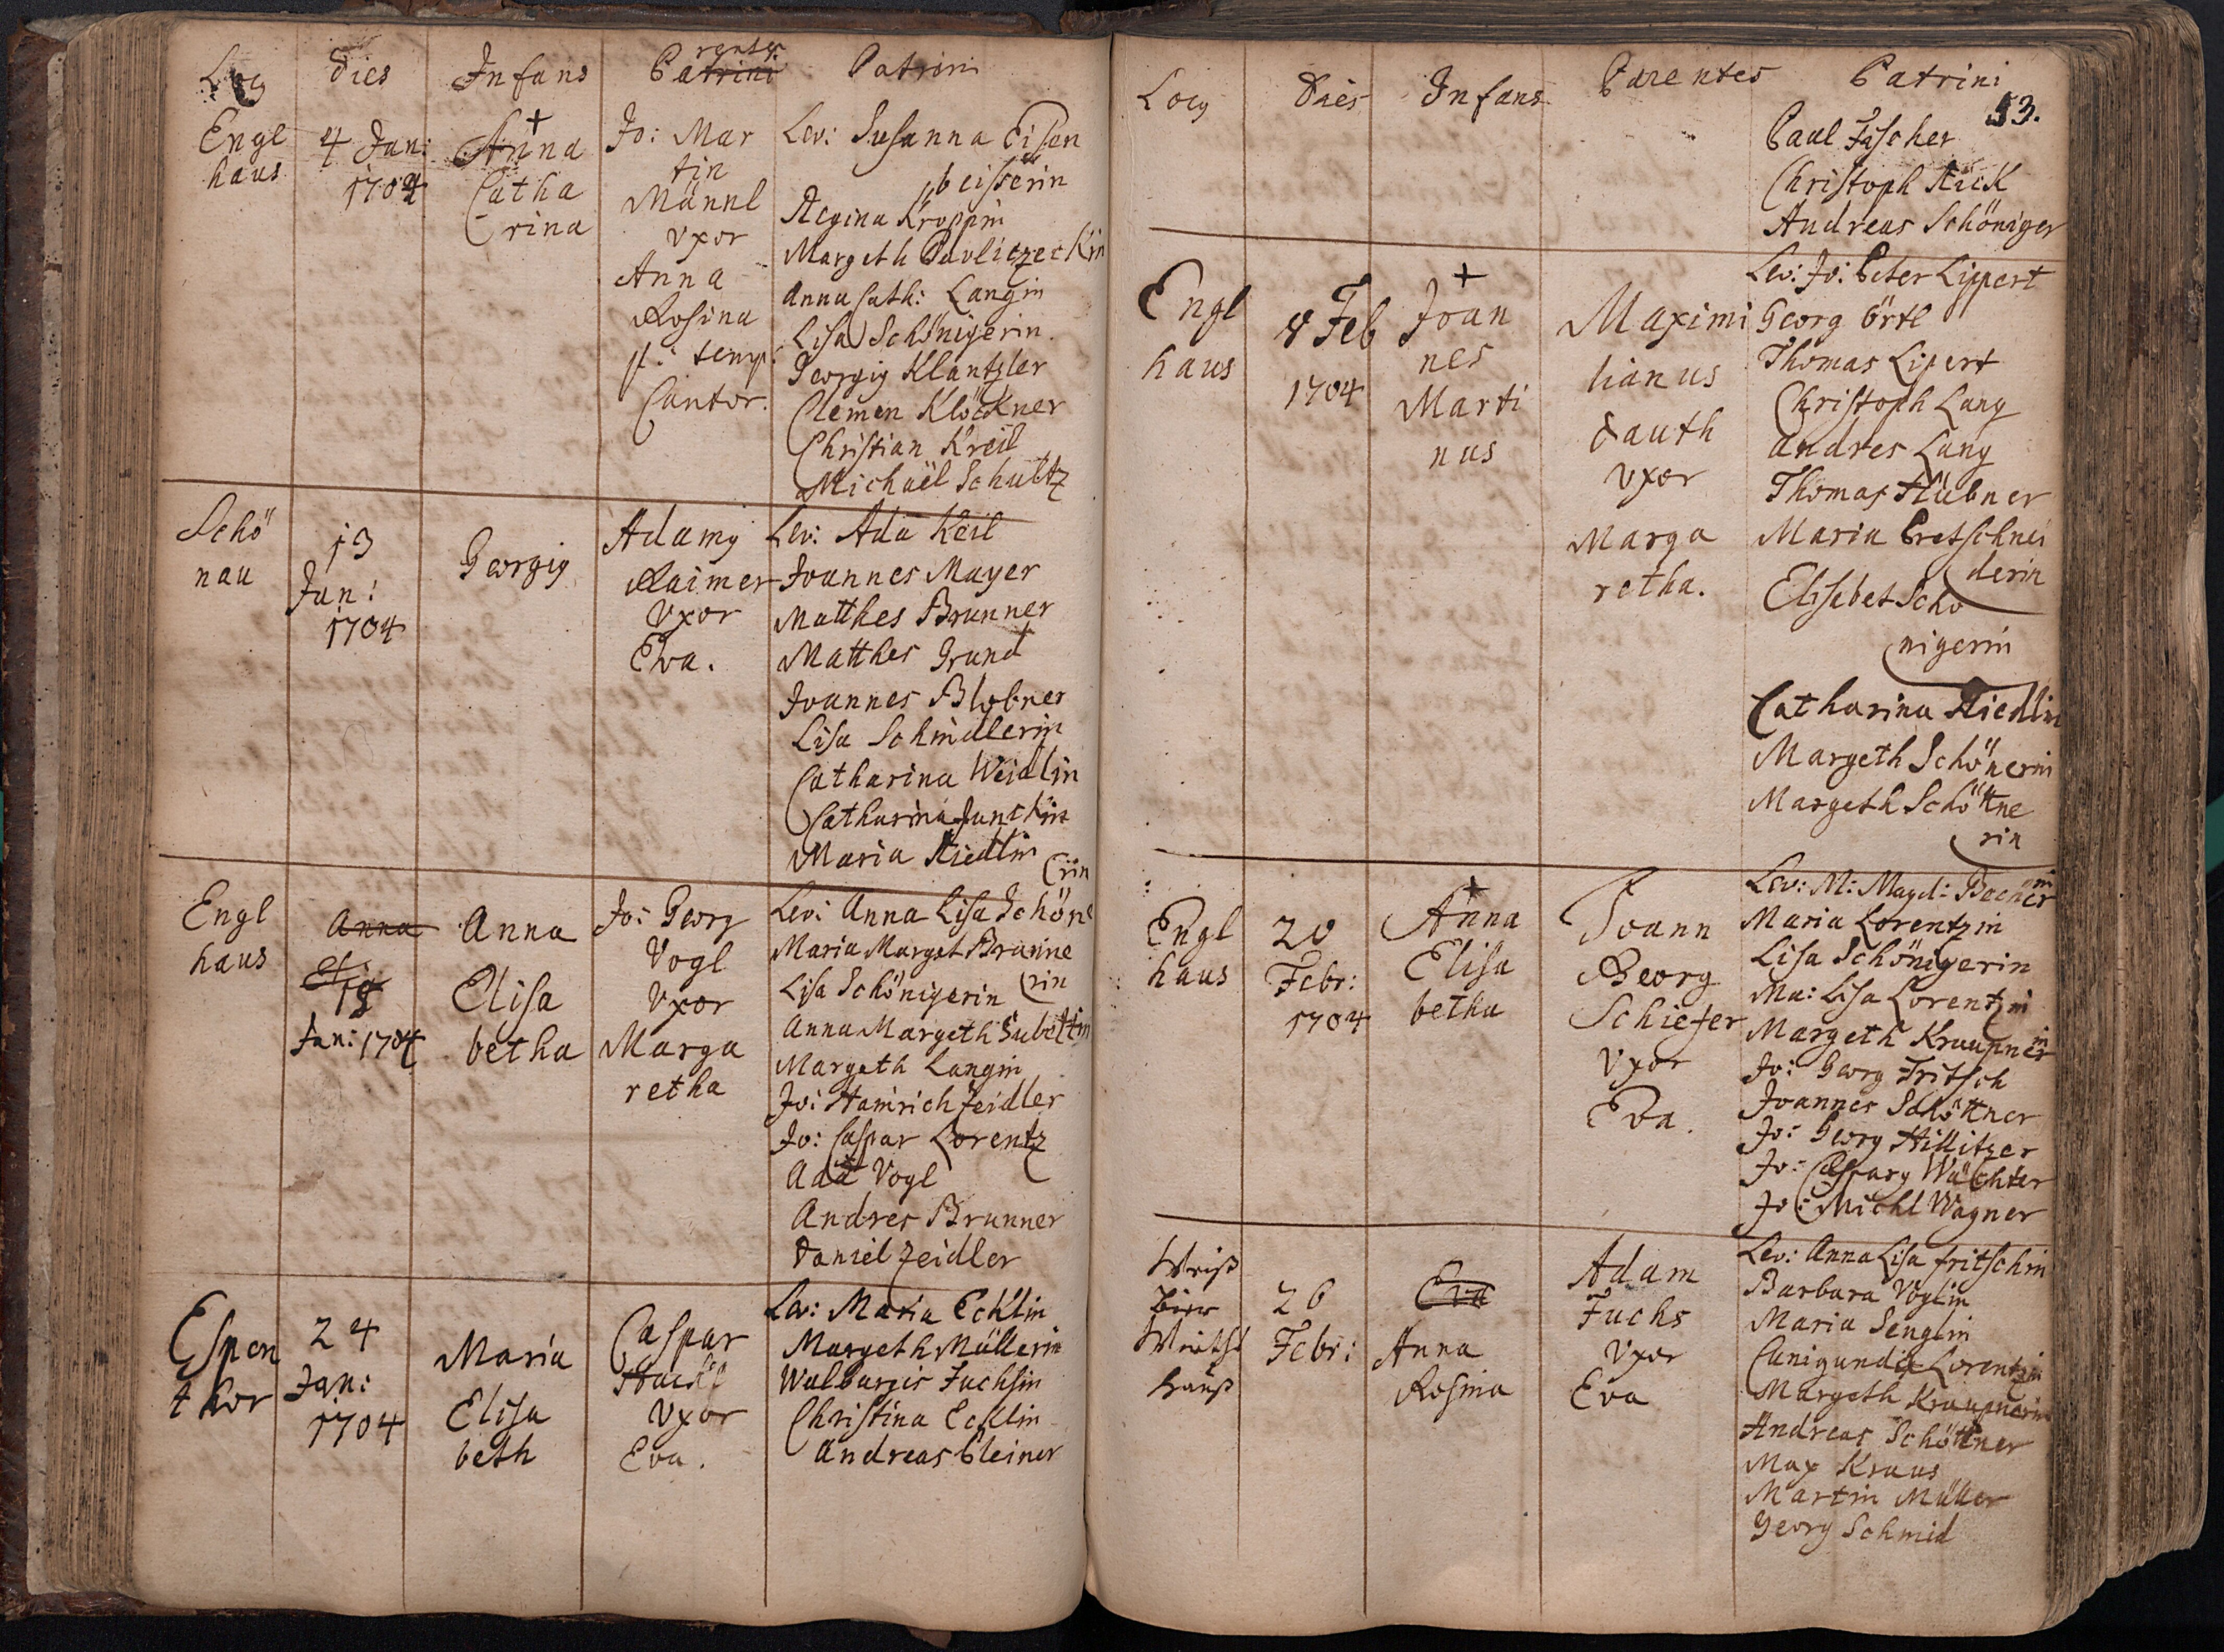 Locg dies Infans Patrini rentes Patrini
Engl
haus
4 Jan:
1704
Anna
Catha
rina
Jo: Mar
tin
Männl
vxor
Anna
Rosina
p: temp:
Cantor.
Lev: Susanna Eisen
beisserin
Regina Kroppin
Margeth Pavliczeckin
Anna Cath: Langin
Lisa Schönigerin.
Georgig Klantzler
Clemen Klöckner
Christian Kreil
Michäel Schultz
Schö
nau
13
Jan:
1704
Georgig
Adamg
Raimer
Vxor
Eva.
Lev: Ada Keil
Joannes Mayer
Matthes Brunner
Matthes Grund
Joannes Blobner
Lisa Schindlerin
Catharina Weidlin
Catharina Junckin
Maria Riedlin
Engl
haus
Anna
18
Jan: 1704
Anna
Elisa
betha
Jo: Georg
Vogl
Vxor
Marga
retha
Lev: Anna Lisa Schöne
rin
Maria Marget Brunne
rin
Lisa Schönigerin
Anna Margeth Subottin
Margeth Langin
Jo: Hainrich Zeidler
Jo: Caspar Lorentz
Ada Vogl
Andres Brunner
Daniel Zeidler
Espen
thor
24
Jan:
1704
Maria
Elisa
beth
Caspar
Vxor
Eva.
Lev: Maria Ecklin
Margeth Müllerin
Walburgis Fuchsin
Christina Ecklin
Andreas Pleiner
Locg dies Infans Parentes Patrini
53.
Paul Fischer
Christoph Rück
Andreas Schöniger
Engl
haus
8 Feb
1704
Joan
nes
Marti
nus
Maximi
lianus
dauth
vxor
Marga
retha.
Lev: Jo: Peter Lippert
Georg Örtl
Thomas Lipert
Christoph Lang
Andres Lang
Thomas Hübner
Maria Pretschnei
derin
Elisebet Schö
nigerin
Catharina Riedlin
Margeth Schönerin
Margeth Schöttne
rin
Engl
haus
20
Febr:
1704
Anna
Elisa
betha
Joann
Georg
Schiefer
Vxor
Eva.
Lev: M: Magd: Becherin
Maria Lorentzin
Lisa Schönigerin
Ma: Lisa Lorentzin
Margeth Kraupnerin
Jo: Georg Fritsch
Joannes Schöttner
Jo: Georg Hillitzer
Jo: Casparg Wächter
Jo: Michl Wagner
Weiß
bier
Wirthß
hauß
26
Febr:
Eva
Anna
Rosina
Adam
Fuchs
Vxor
Eva
Lev: Anna Lisa fritschin
Barbara Voglin
Maria Senglin
Cunigunda Lorentzin
Margeth Kraupnerin
Andreas Schöttner
Max Kraus
Martin Müller
Georg Schmid